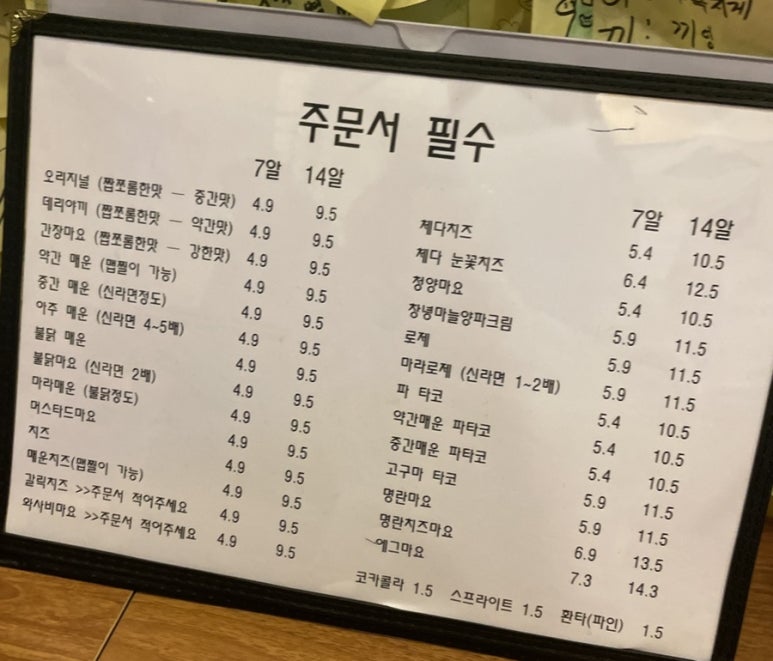 끼 : 끼잉
주문서 필수
7알 14알
오리지널 (짭쪼롬한맛 — 중간맛) 4.9 9.5
데리아끼 (짭쪼롬한맛 — 약간맛) 4.9 9.5
간장마요 (짭쪼롬한맛 — 강한맛) 4.9 9.5
약간 매운 (맵찔이 가능) 4.9 9.5
중간 매운 (신라면정도) 4.9 9.5
아주 매운 (신라면 4~5배) 4.9 9.5
불닭 매운 4.9 9.5
불닭마요 (신라면 2배) 4.9 9.5
마라매운 (불닭정도) 4.9 9.5
머스타드마요 4.9 9.5
치즈 4.9 9.5
매운치즈(맵찔이 가능) 4.9 9.5
갈릭치즈 >>주문서 적어주세요 4.9 9.5
와사비마요 >>주문서 적어주세요 4.9 9.5
7알 14알
체다치즈 5.4 10.5
체다 눈꽃치즈 6.4 12.5
청양마요 5.4 10.5
창녕마늘양파크림 5.9 11.5
로제 5.9 11.5
마라로제 (신라면 1~2배) 5.9 11.5
파 타코 5.4 10.5
약간매운 파타코 5.4 10.5
중간매운 파타코 5.4 10.5
고구마 타코 5.9 11.5
명란마요 5.9 11.5
명란치즈마요 6.9 13.5
에그마요 7.3 14.3
코카콜라 1.5 스프라이트 1.5 환타(파인) 1.5